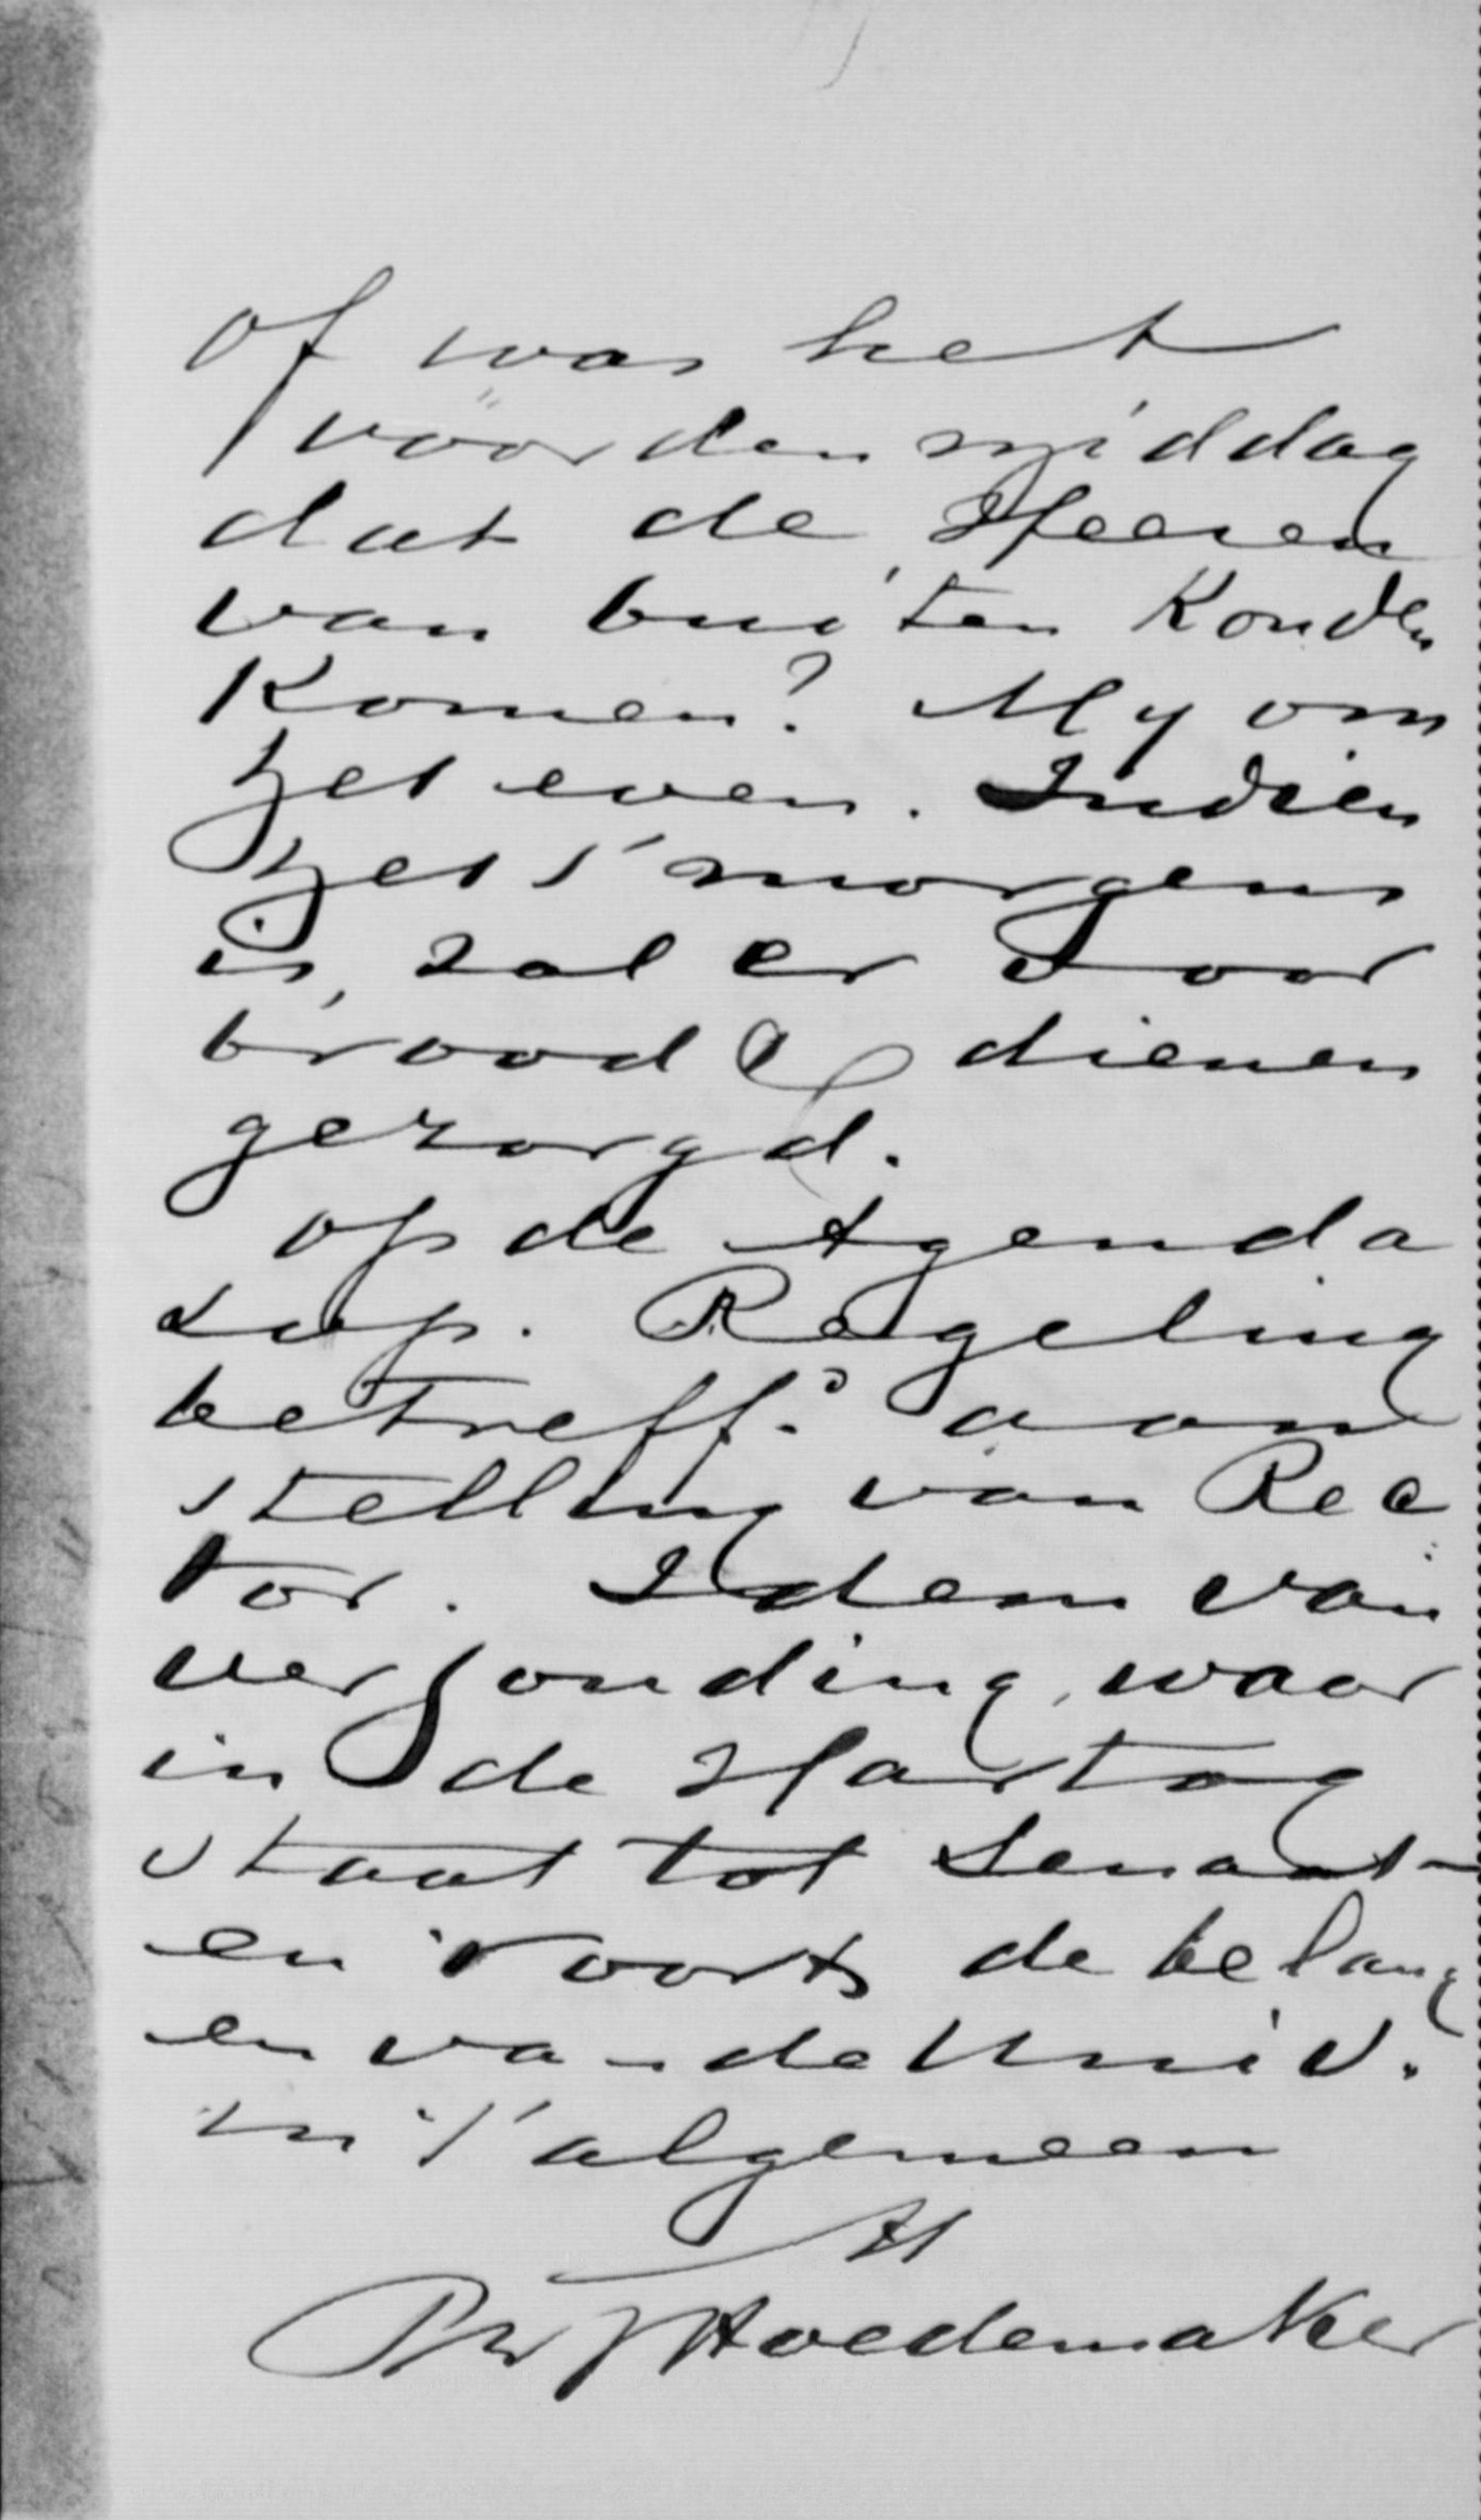 of was het
vöor den middag
dat de Heeren
van buiten konden
komen? My om
het even. Indien
het s' morgens
is, zal er voor
brood & dienen
gezorgd.
Op de Agenda
s.v.p. Regeling
betreff.d aan
stelling van Rec
tor. Idem van
verhouding, waar
in de Hartog
staat tot Senaat-
en voorts de belang
en van de Univ.
in 't algemeen
tt
Ph J Hoedemaker